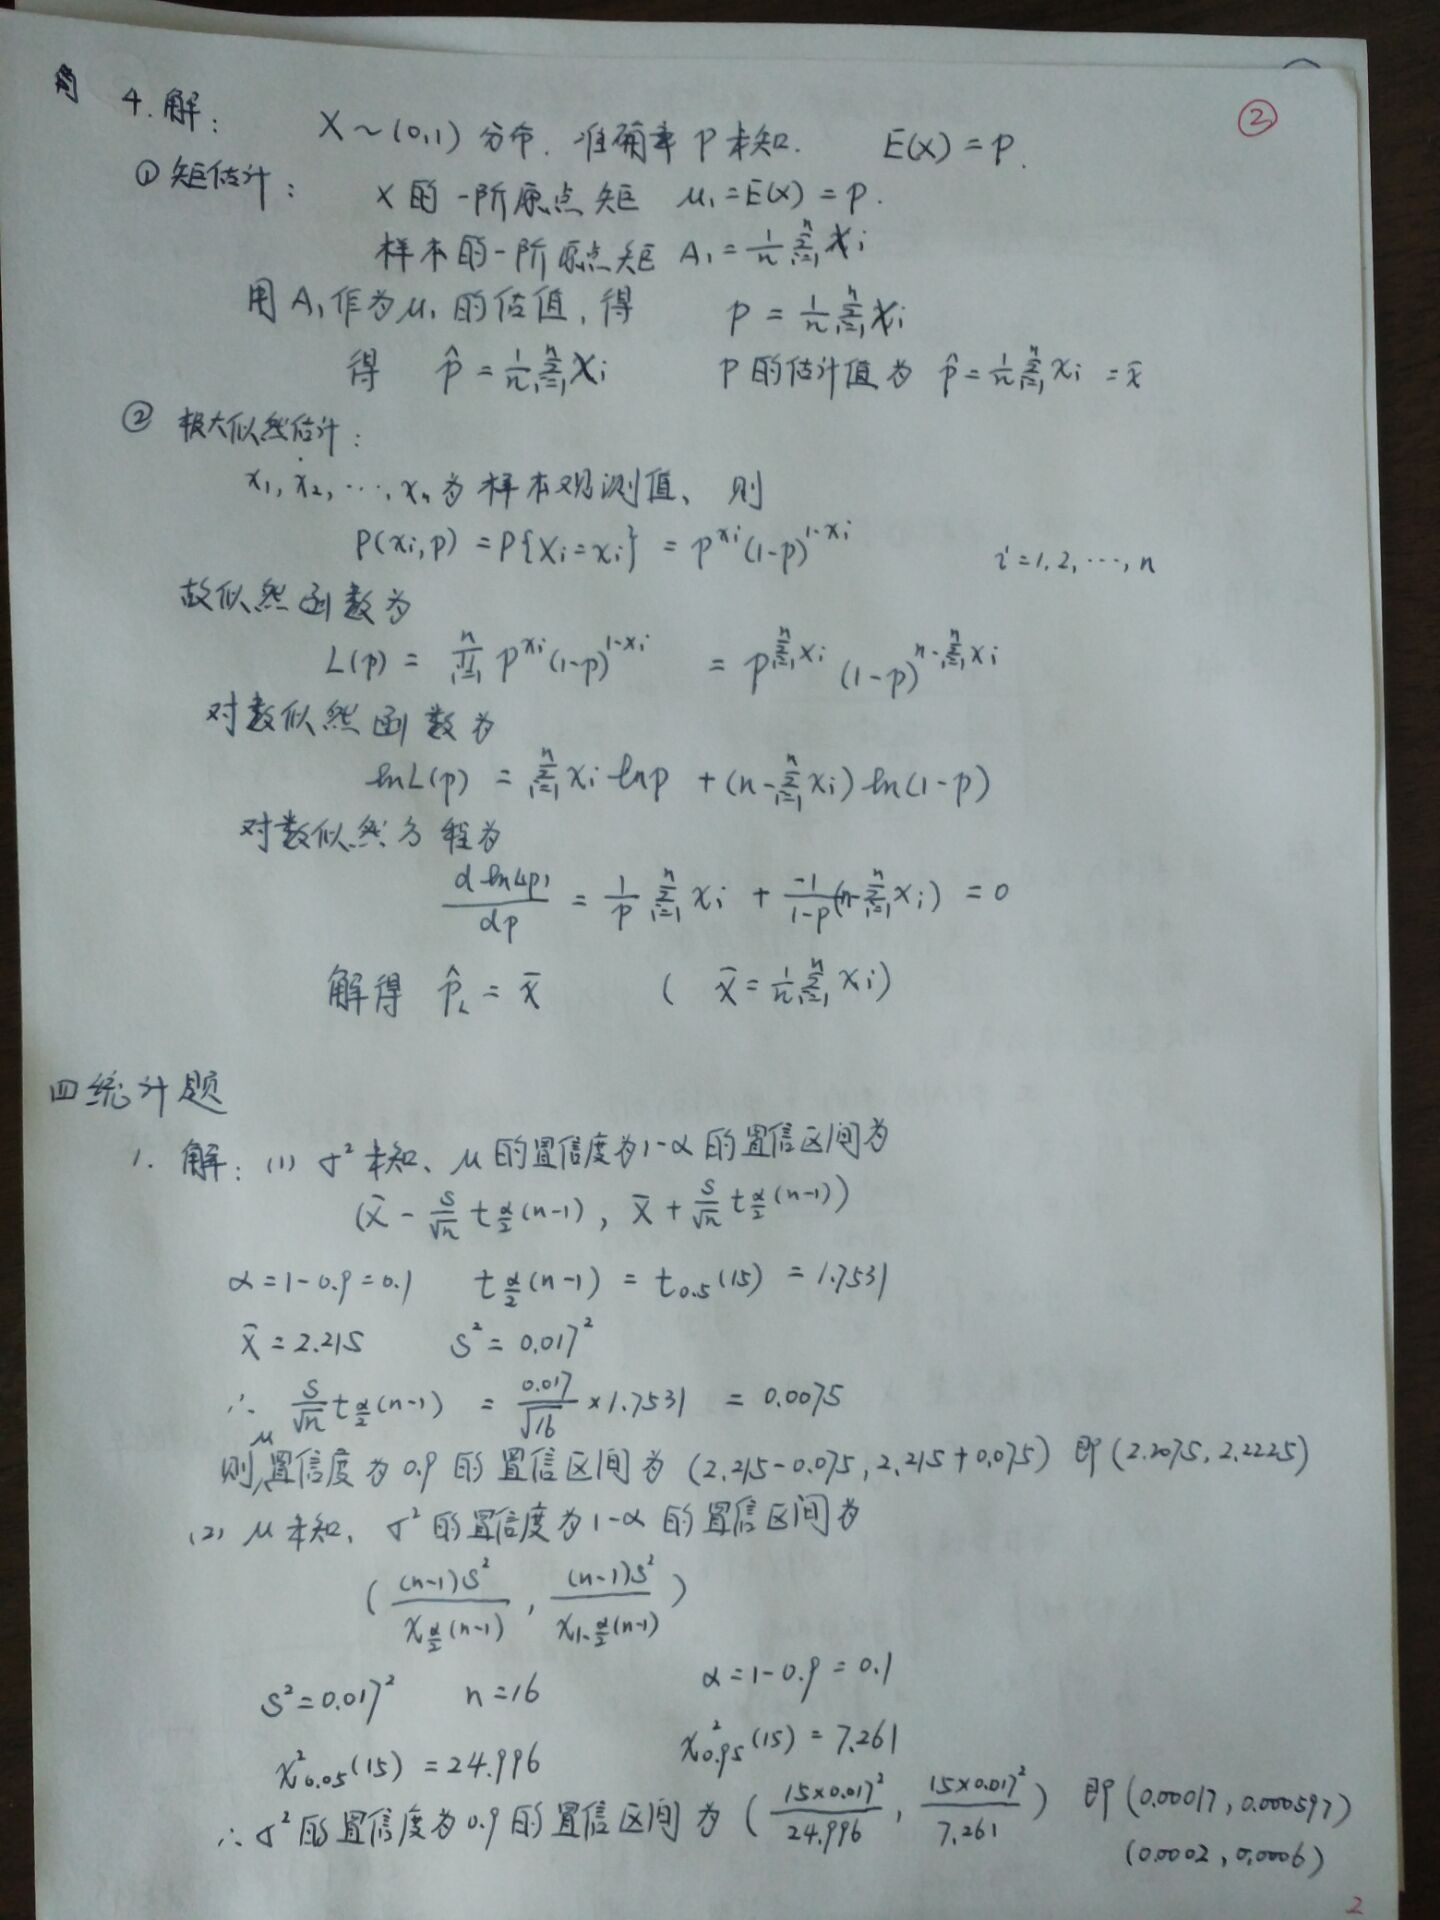 ②
4. 解: X~(0,1) 分布. 准确率 p 未知. E(X)=p.
① 矩估计: X 的一阶原点矩 μ₁=E(X)=p.
样本的一阶原点矩 A₁=1/n ∑ᵢ₌₁ⁿ Xᵢ
用 A₁ 作为 μ₁ 的估值, 得 p=1/n ∑ᵢ₌₁ⁿ Xᵢ
得 p̂=1/n ∑ᵢ₌₁ⁿ Xᵢ p 的估计值为 p̂=1/n ∑ᵢ₌₁ⁿ xᵢ =x̄
② 极大似然估计:
x₁, x₂, ⋯, xₙ 为样本观测值、则
P(xᵢ,p)=P{Xᵢ=xᵢ}=p^(xᵢ)(1-p)^(1-xᵢ) i=1,2,⋯,n
故似然函数为
L(p)=∏ᵢ₌₁ⁿ p^(xᵢ)(1-p)^(1-xᵢ) =p^(∑ᵢ₌₁ⁿ xᵢ) (1-p)^(n-∑ᵢ₌₁ⁿ xᵢ)
对数似然函数为
lnL(p) = ∑ᵢ₌₁ⁿ xᵢ lnp +(n-∑ᵢ₌₁ⁿ xᵢ) ln(1-p)
对数似然方程为
d lnL(p)/dp = 1/p ∑ᵢ₌₁ⁿ xᵢ + -1/(1-p) (n-∑ᵢ₌₁ⁿ xᵢ) = 0
解得 p̂_L = x̄ ( x̄=1/n ∑ᵢ₌₁ⁿ xᵢ)
四 统计题
1. 解: (1) σ² 未知、μ 的置信度为 1-α 的置信区间为
(x̄ - S/√n t_(α/2)(n-1), x̄ + S/√n t_(α/2)(n-1))
α=1-0.9=0.1 t_(α/2)(n-1) = t₀.₅(15) = 1.7531
x̄=2.215 S²=0.017²
∴ S/√n t_(α/2)(n-1) = 0.017/√16 ×1.7531 = 0.0075
则 μ 置信度为 0.9 的置信区间为 (2.215-0.075, 2.215+0.075) 即 (2.2075, 2.2225)
(2) μ 未知、σ² 的置信度为 1-α 的置信区间为
( (n-1)S²/χ_(α/2)(n-1), (n-1)S²/χ_(1-α/2)(n-1) )
S²=0.017² n=16 α=1-0.9=0.1
χ²₀.₀₅(15)=24.996 χ²₀.₉₅(15)=7.261
∴ σ² 的置信度为 0.9 的置信区间为 ( 15×0.017²/24.996, 15×0.017²/7.261 ) 即 (0.00017, 0.000597)
(0.0002, 0.0006)
2